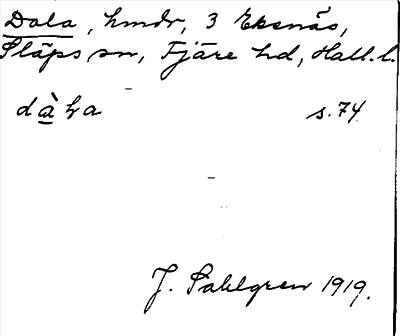 Dala, hmdr, 3 Ekenäs,
Släps sn, Fjäre hd, Hall. l.
dàl̲a s. 74
J. Sahlgren 1919.